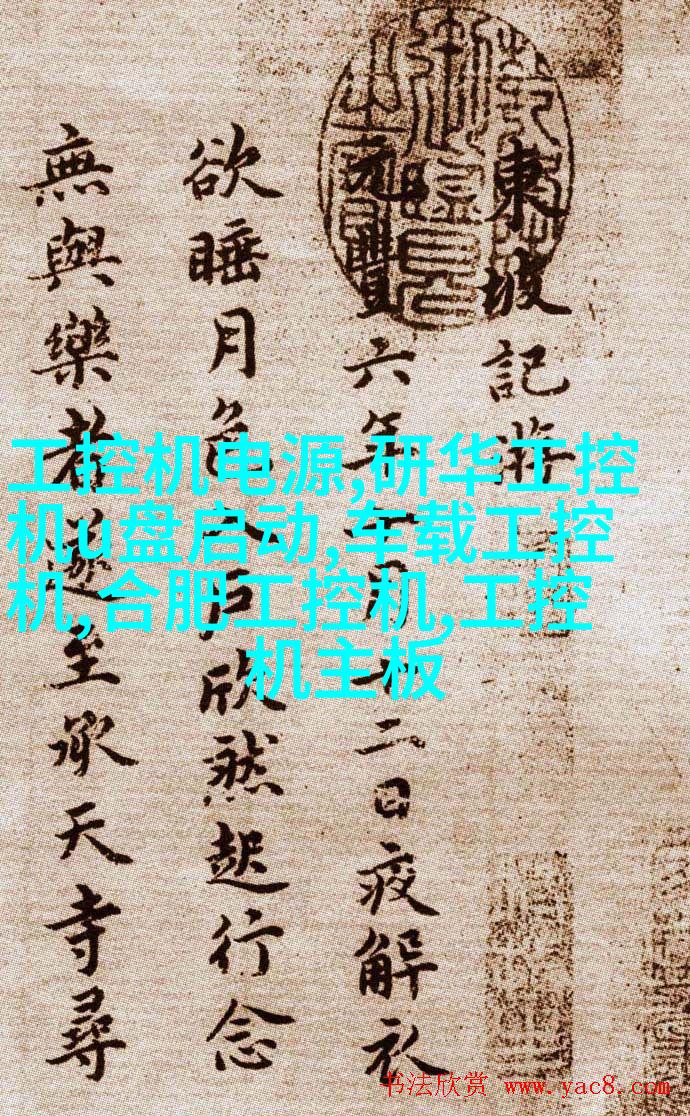 東坡記游
元豐六年十月十二日夜解衣
欲睡月色入戶欣然起行念
無與樂者遂至承天寺尋
工控机电源,研华工控
机u盘启动,车载工控
机,合肥工控机,工控
机主板
书法欣赏 www.yac8.com